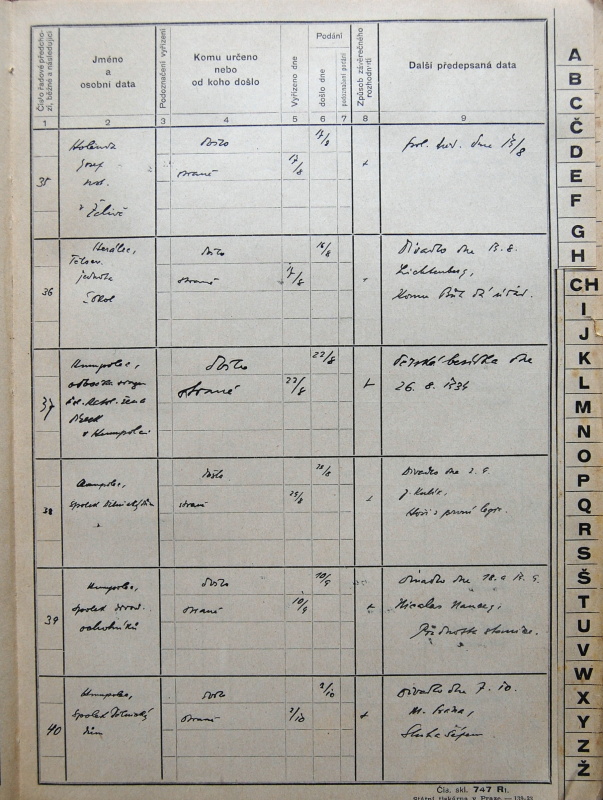 Číslo řadové předcho-
zí, běžné a následující
Jméno
a
osobní data
Podoznačení vyřízení
Komu určeno
nebo
od koho došlo
Vyřízeno dne
Podání
došlo dne
podoznačení podání
Způsob závěrečného
rozhodnutí
Další předepsaná data
1 2 3 4 5 6 7 8 9
35
Holenda
Josef
v Želivě
došlo 17/8
straně 17/8
+
dne 15/8
36
Herálec,
jednota
Sokol
došlo 16/8
straně 17/8
Divadlo dne 19. 8.
Lichtenberg,
Komu Bůh dá úřad.
37
Humpolec,
v Humpolci
došlo 22/8
straně 22/8
+
Dětská besídka dne
26. 8. 1934
38
Humpolec,
Spolek Dělnický dům
došlo 28/8
straně 29/8
Divadlo dne 2. 9.
Hoši z první legie.
39
Humpolec,
Spolek divad.
ochotníků
došlo 10/9
straně 10/9
+
Divadlo dne 18. a 19. 9.
Nicolas Nancey,
Přednosta stanice.
40
Humpolec,
Spolek Dělnický
dům
došlo 2/10
straně 2/10
+
Divadlo dne 7. 10.
Sluha šéfem
Čís. skl. 747 Ri.
Státní tiskárna v Praze
A
B
C
Č
D
E
F
G
H
CH
I
J
K
L
M
N
O
P
Q
R
S
Š
T
U
V
W
X
Y
Z
Ž